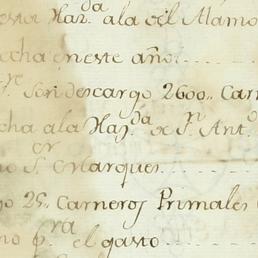 esta Haz.da ala del Alamo
echa en este año
Son descargo 2600,, Car
cha ala Haz.da de S.n Ant.o
no S.er Marques
25,, Carneros Primales
no p.ra el gasto